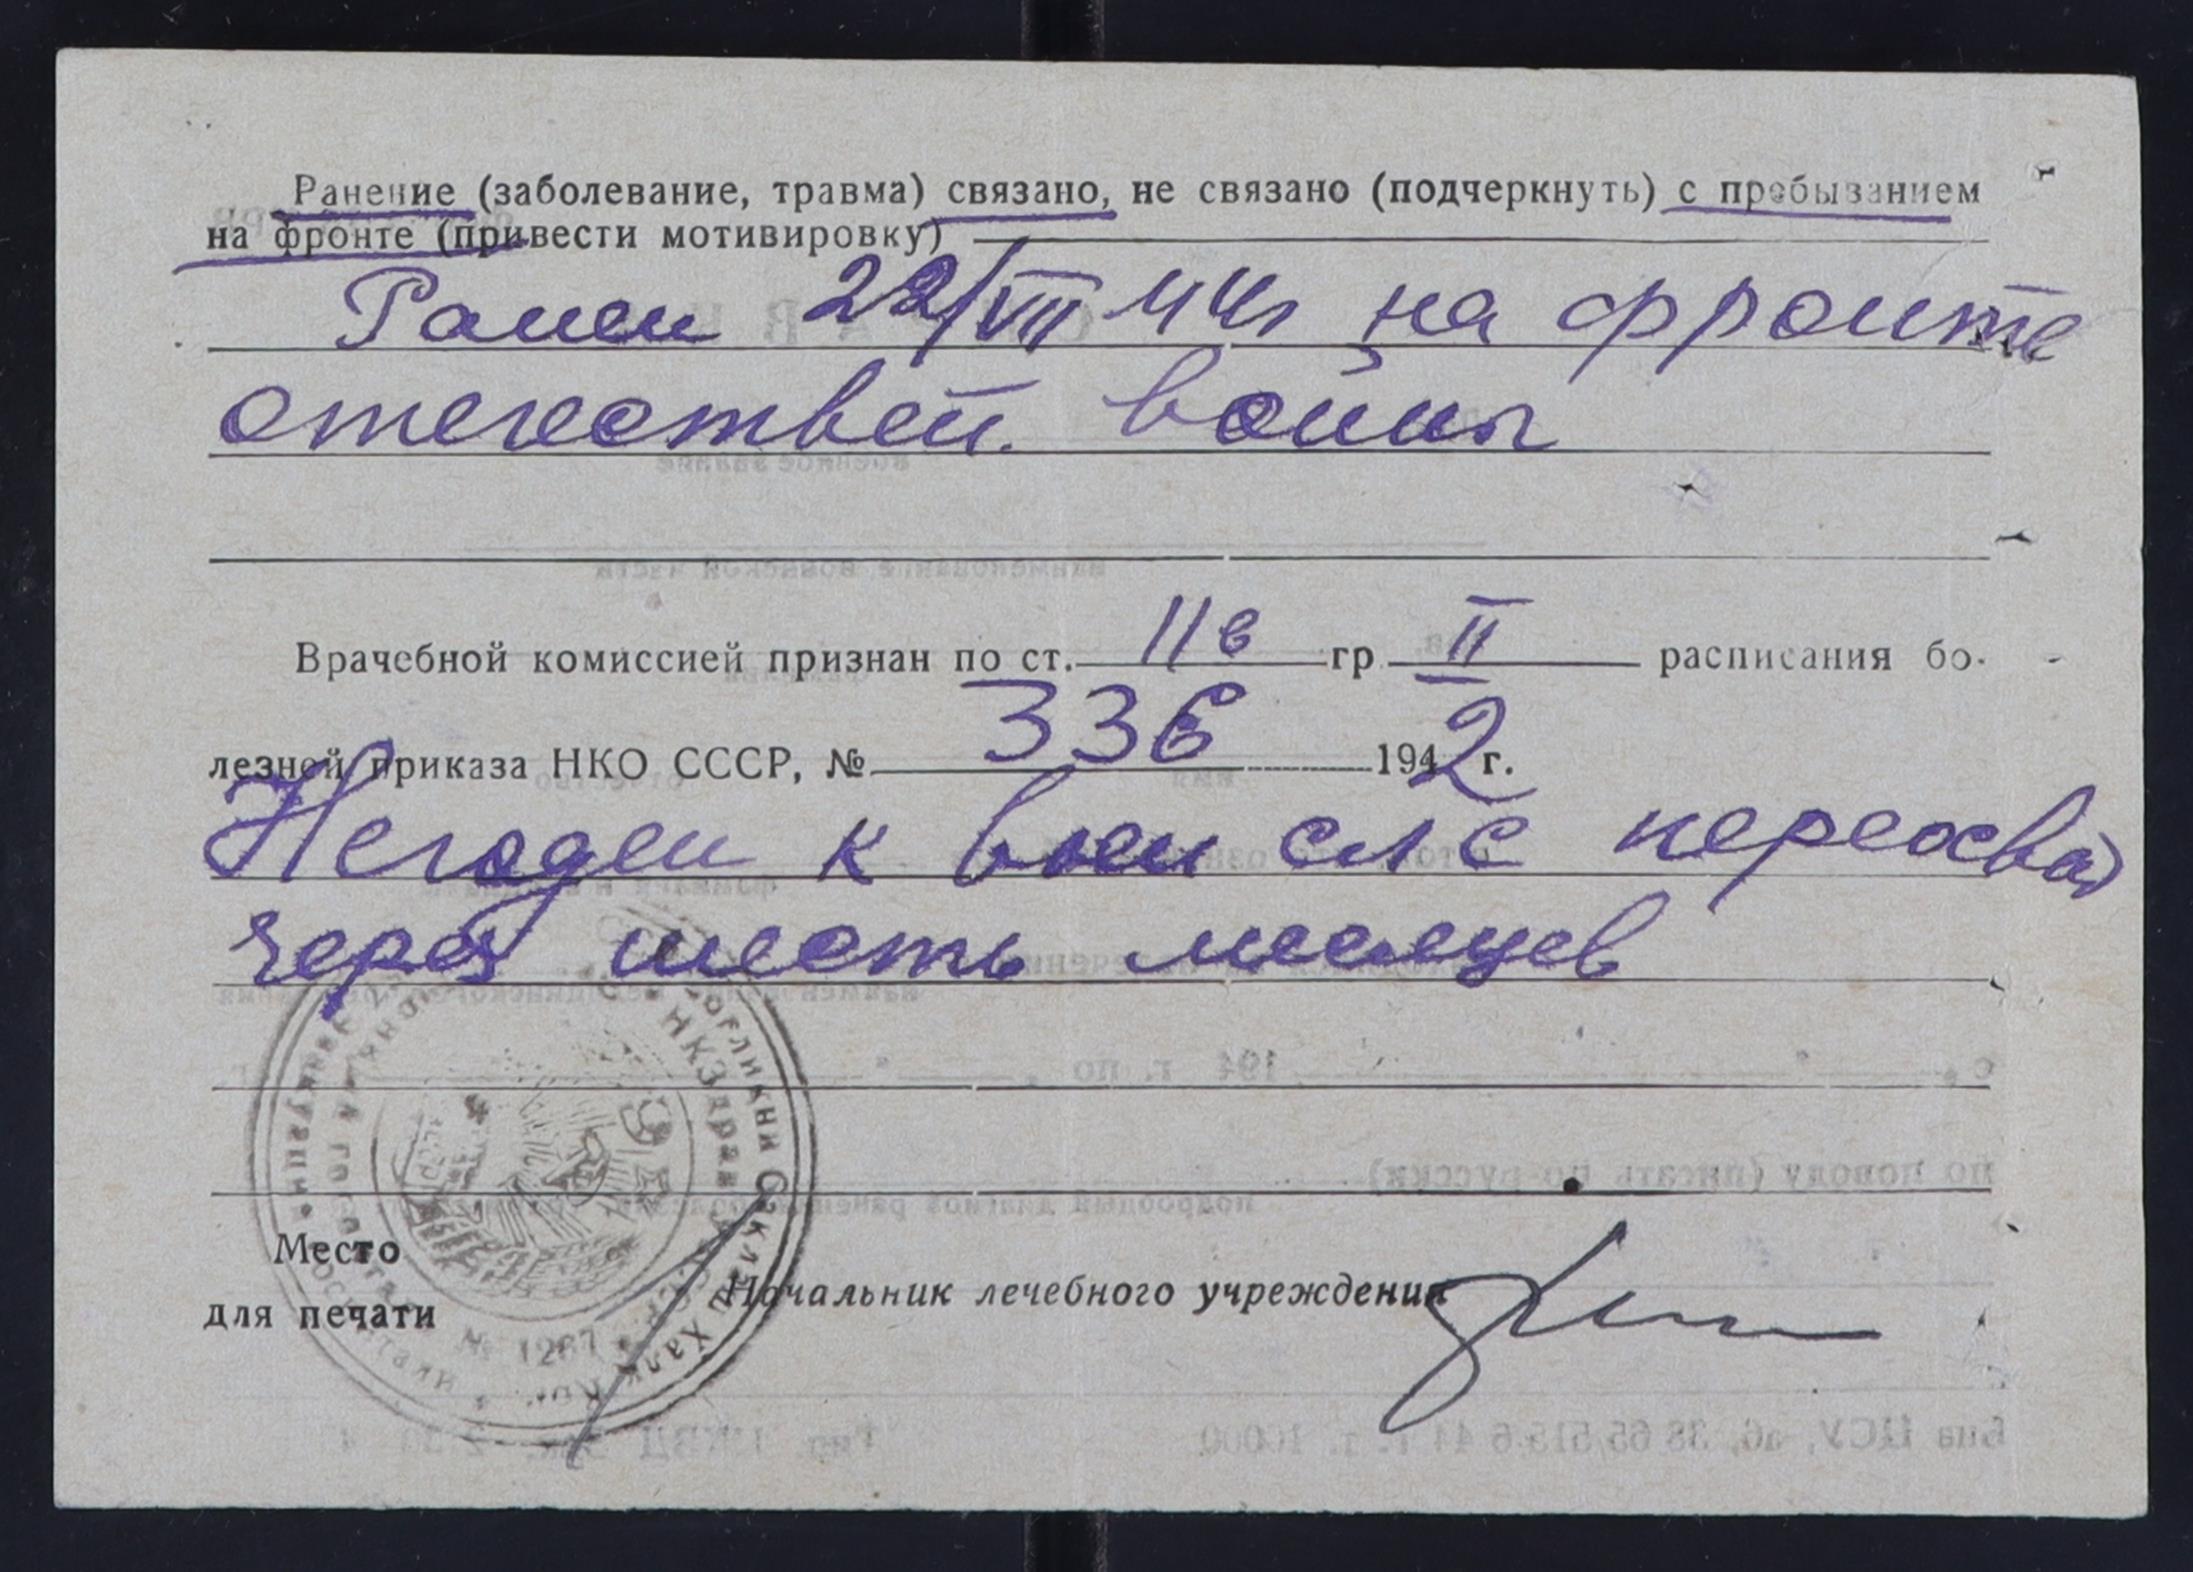 Ранение (заболевание, травма) связано, не связано (подчеркнуть) с пребыванием
на фронте (привести мотивировку)
Ранен 22/VII 44г на фронте
отечествен. войны
Врачебной комиссией признан по ст. 11в гр II расписания бо-
лезной приказа НКО СССР, № 336 1942 г.
Негоден к воен сл с переосвид
через шесть месяцев
Место
для печати
Начальник лечебного учреждения
№ 1267